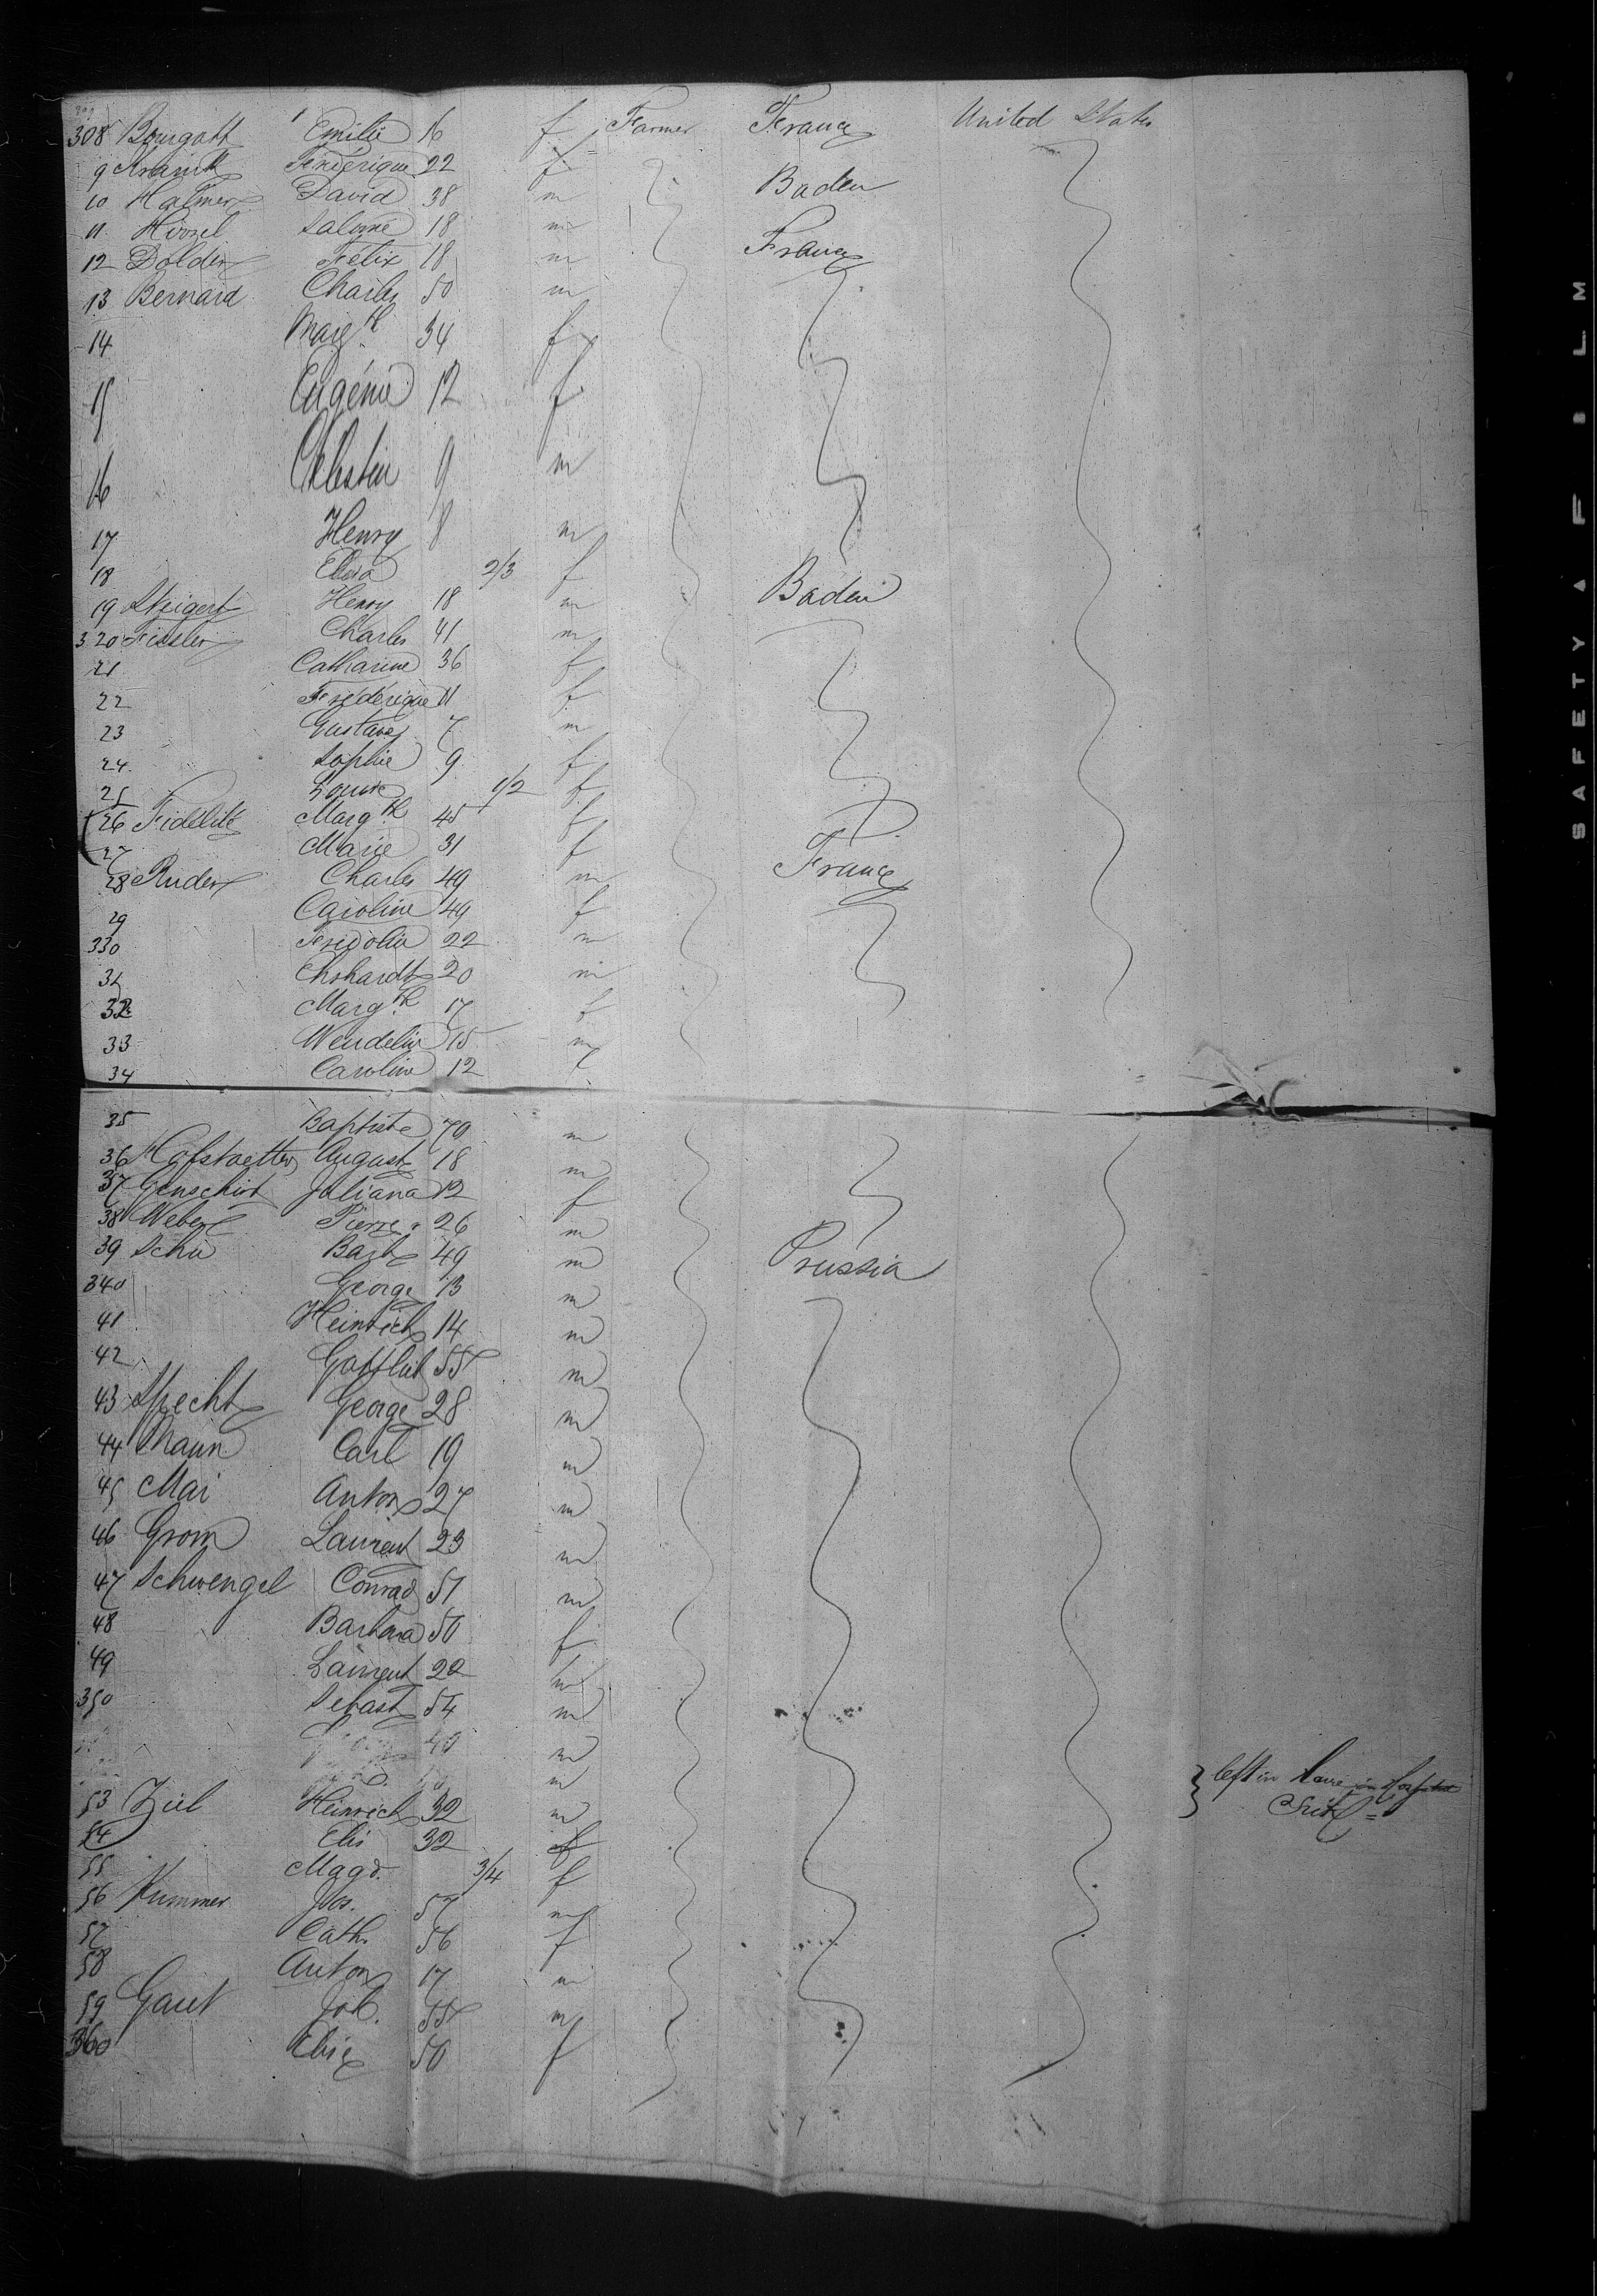 308 Bourgatt Emilie 16 f Farmer France United States
9 Frederique 22 f
10 David 38 m Baden
11 Hirzel Salomé 18 m
12 Dolder Felix 18 m France
13 Bernard Charles 50 m
14 Marg.th 34 f
15 Eugénie 12 f
16 Celestin 9 m
17 Henry 8 m
18 Elisa 2/3 f
19 Steigert Henry 18 m Baden
320 Fissler Charles 41 m
21 Catharine 36 f
22 Frederique 11 f
23 Gustave 7 m
24 Sophie 9 f
25 Louise 1/2 f
26 Fidelitz Marg.th 45 f
27 Marie 31 f
28 Ruder Charles 49 m France
29 Caroline 49 f
330 Fridolin 22 m
31 Ehrhardt 20 m
32 Marg.th 17 f
33 Wendelin 15 m
34 Caroline 12 f
35 Baptiste 70 m
36 Hofstaetter August 18 m
37 Genschirt Juliana 12 f
38 Weber Pierre 26 m
39 Schu Barb 49 m Prussia
340 George 13 m
41 Heinrich 14 m
42 Gottlieb 55 m
43 Specht George 28 m
44 Carl 19 m
45 Mai Anton 27 m
46 Grom Laurent 23 m
47 Schwengel Conrad 51 m
48 Barbara 50 f
49 Laurent 22 m
350 Sebast 54 m
40 m
m
53 Ziel Heinrich 32 m } left in
54 Elis 32 f
55 Magd. 3/4 f
56 Kummer Jos. 57 m
57 Cath. 56 f
58 Anton 17 m
59 Gaut Joh. 55 m
360 Elise 50 f
SAFETY FILM